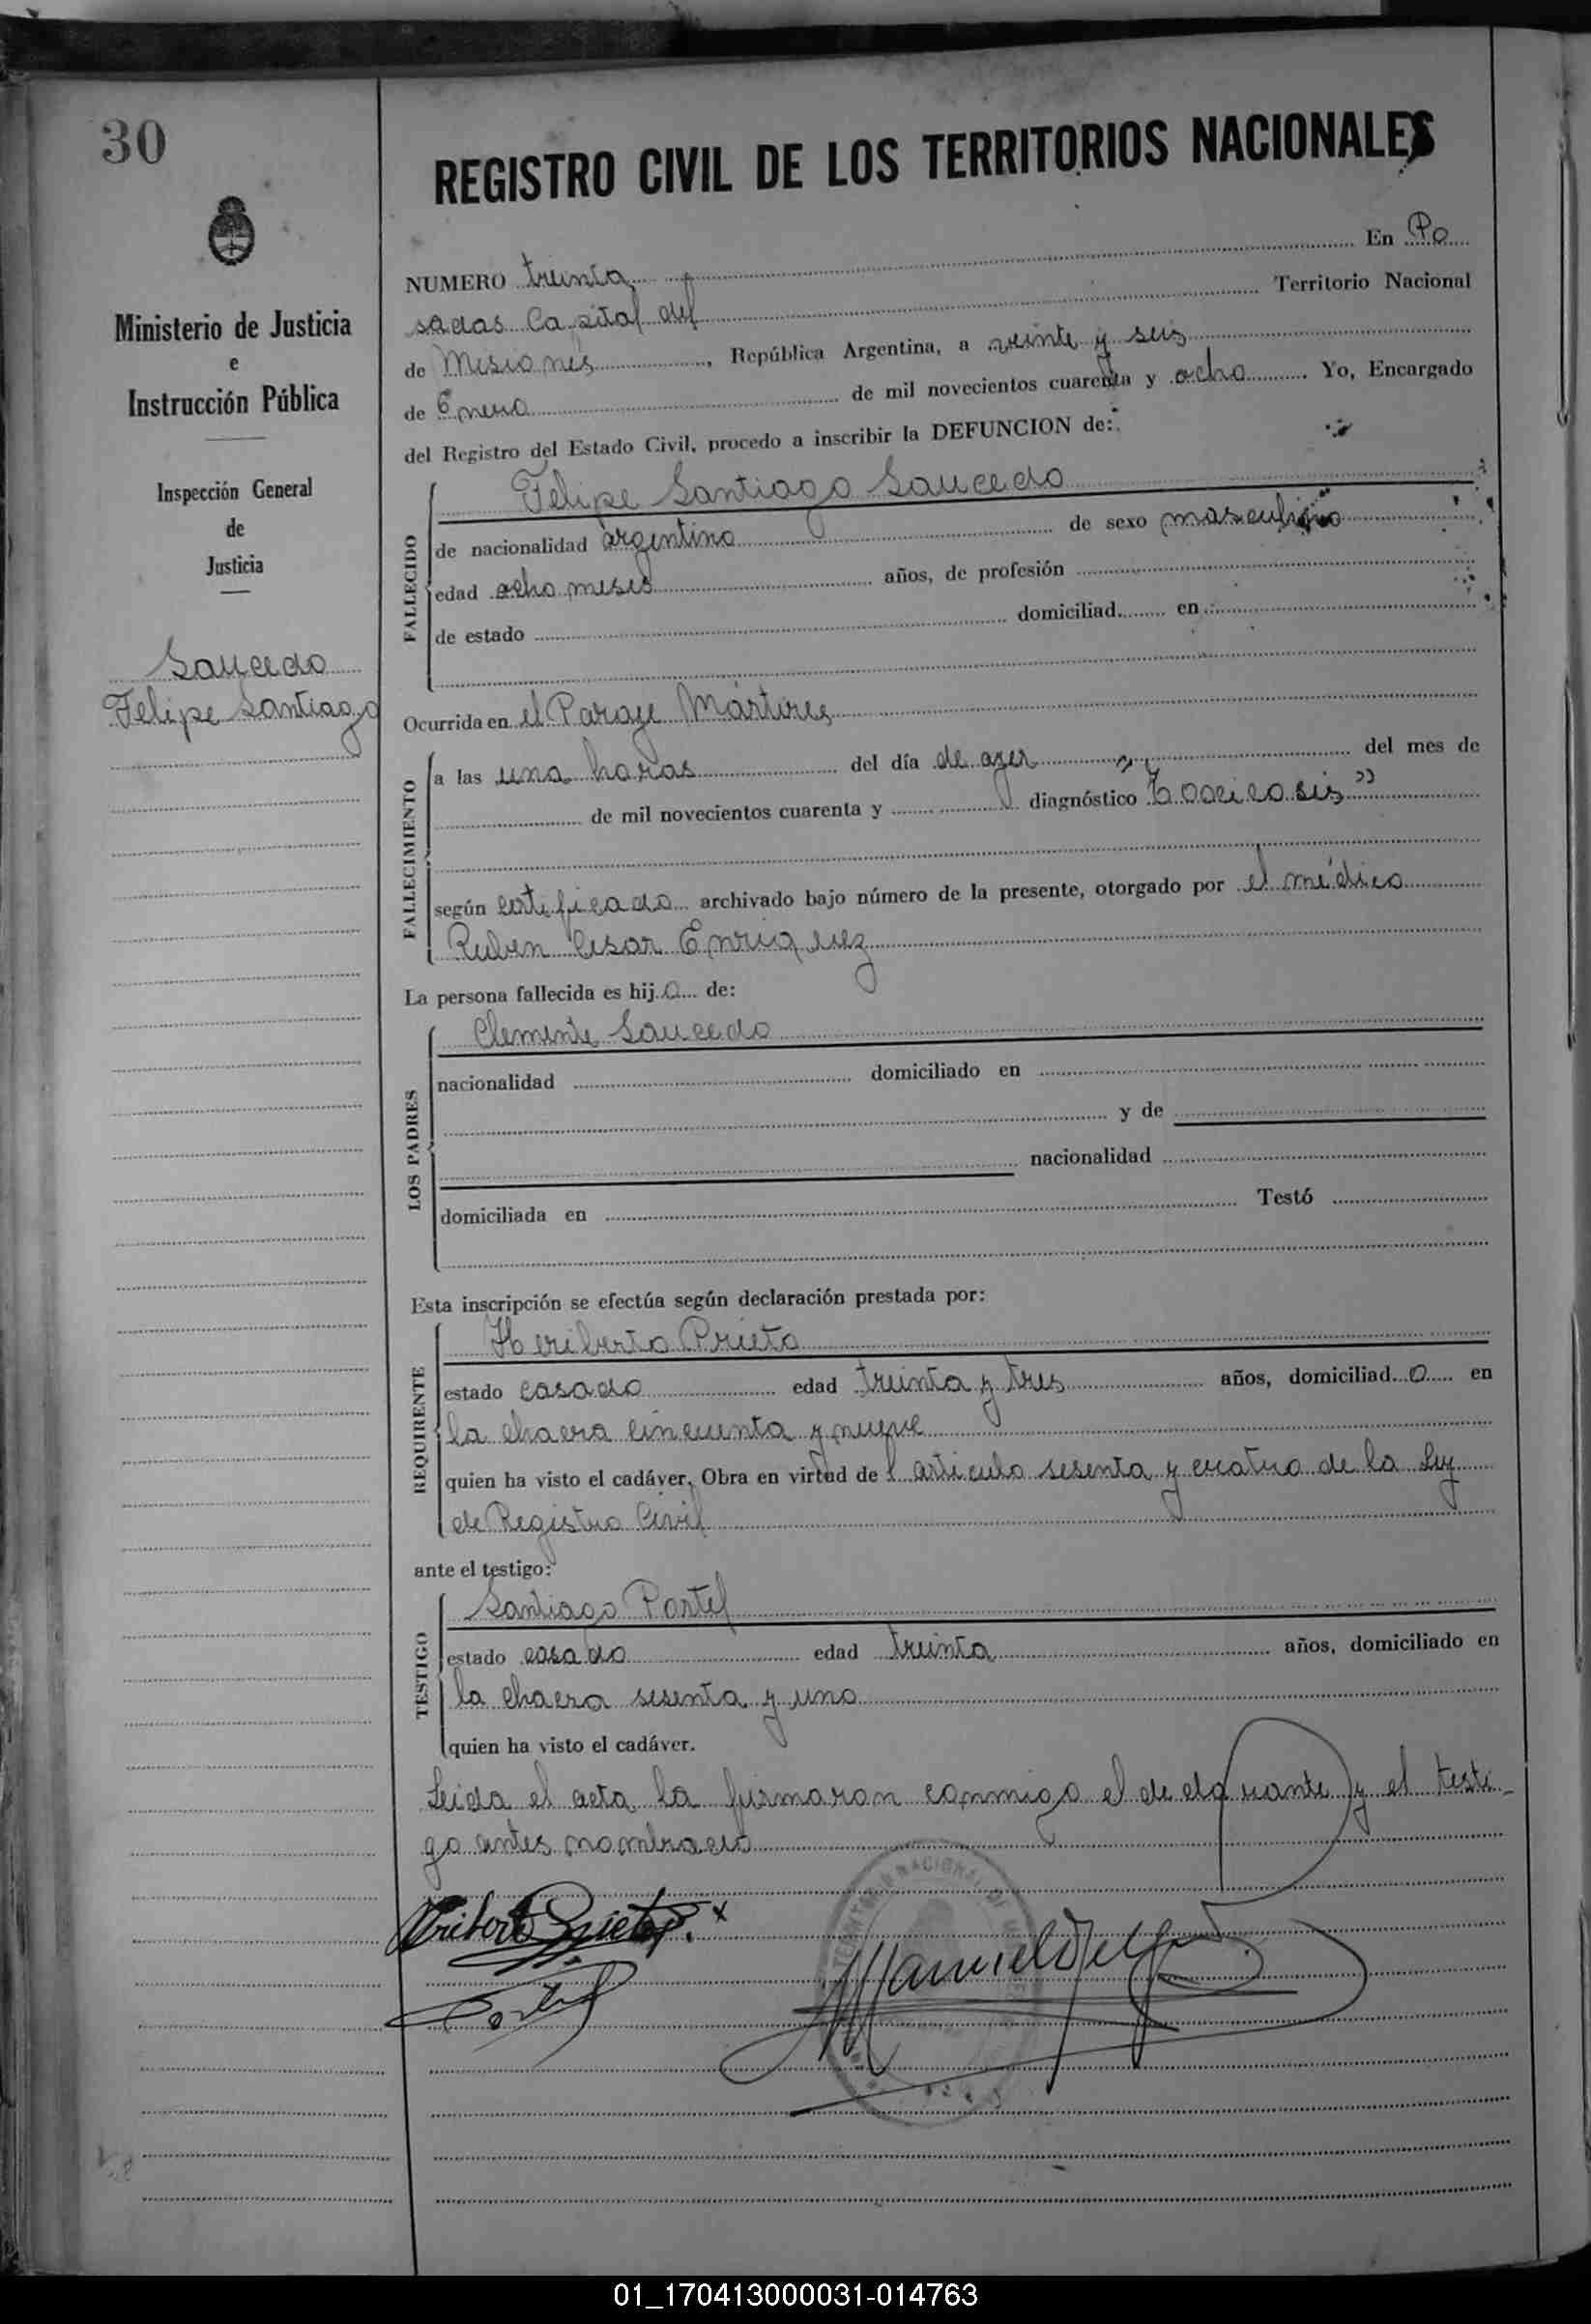 30
Ministerio de Justicia
e
Instrucción Pública
Inspección General
de
Justicia
Saucedo
Felipe Santiago
REGISTRO CIVIL DE LOS TERRITORIOS NACIONALES
NUMERO treinta En Po
sadas Capital del Territorio Nacional
de Misiones, República Argentina, a veinte y seis
de Enero de mil novecientos cuarenta y ocho Yo, Encargado
del Registro del Estado Civil, procedo a inscribir la DEFUNCION de:
FALLECIDO
Felipe Santiago Saucedo
de nacionalidad argentino de sexo masculino
edad ocho meses años, de profesión
de estado domiciliad en
Ocurrida en el Paraje Mártires
FALLECIMIENTO
a las una horas del día de ayer del mes de
de mil novecientos cuarenta y diagnóstico "Toxicosis"
según certificado archivado bajo número de la presente, otorgado por el médico
Ruben Cesar Enriquez
La persona fallecida es hijo de:
LOS PADRES
Clemente Saucedo
nacionalidad domiciliado en
y de
nacionalidad
domiciliada en Testó
Esta inscripción se efectúa según declaración prestada por:
REQUIRENTE
Heriberto Prieto
estado casado edad treinta y tres años, domiciliado en
la chacra cincuenta y nueve
quien ha visto el cadáver. Obra en virtud del articulo sesenta y cuatro de la Ley
de Registro Civil
ante el testigo:
TESTIGO
Santiago Portel
estado casado edad treinta años, domiciliado en
la chacra sesenta y uno
quien ha visto el cadáver.
Leida el acta la firmaron conmigo el declarante y el testi-
go antes nombrado
Heriberto Prieto
Portel
Manuel
TERRITORIO NACIONAL DE
01_170413000031-014763